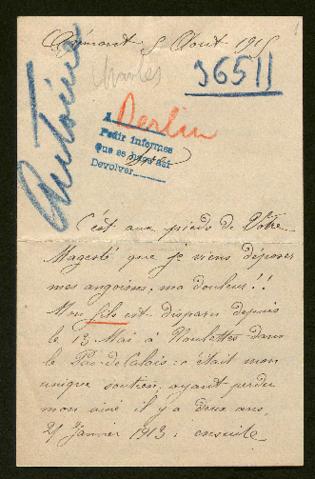 5 Août 1915
Charles
36511
Antoine
A Berlin
Pedir informes
que es
Devolver
C'est aux pieds de Votre
Magesté que je viens déposer
mes angoisses, ma douleur!!
Mon fils est disparu depuis
le 13 Mai à Noulettes dans
le Pas-de-Calais: c'était mon
unique soutien, ayant perdu
mon ainé il y a deux ans,
21 Janvier 1913: ensuite